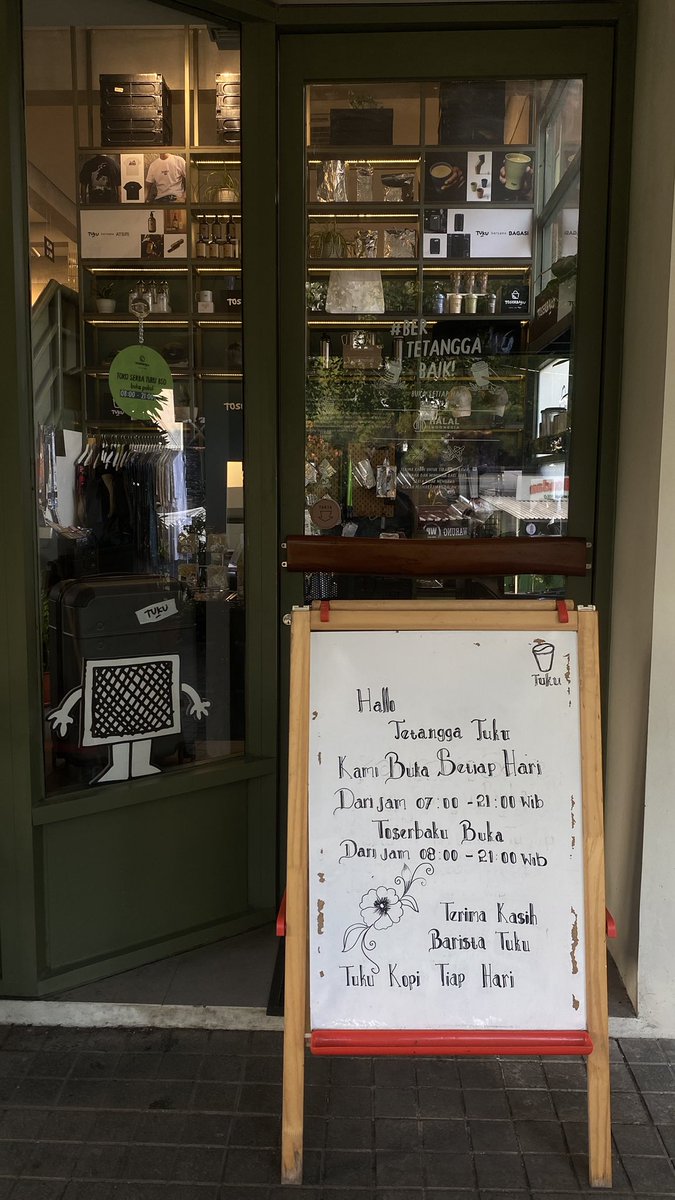 TUKU bersama ATSIRI
TUKU bersama BAGASI
TOSERBAKU
#BER
TETANGGA
BAIK!
HALAL
INDONESIA
TOKO SERBA TUKU ASO
buka pukul
08:00 - 21:00
TUKU
WARUNG
Tuku
Hallo
Tetangga Tuku
Kami Buka Setiap Hari
Dari jam 07:00 - 21:00 WIB
Toserbaku Buka
Dari jam 08:00 - 21:00 WIB
Terima Kasih
Barista Tuku
Tuku Kopi Tiap Hari